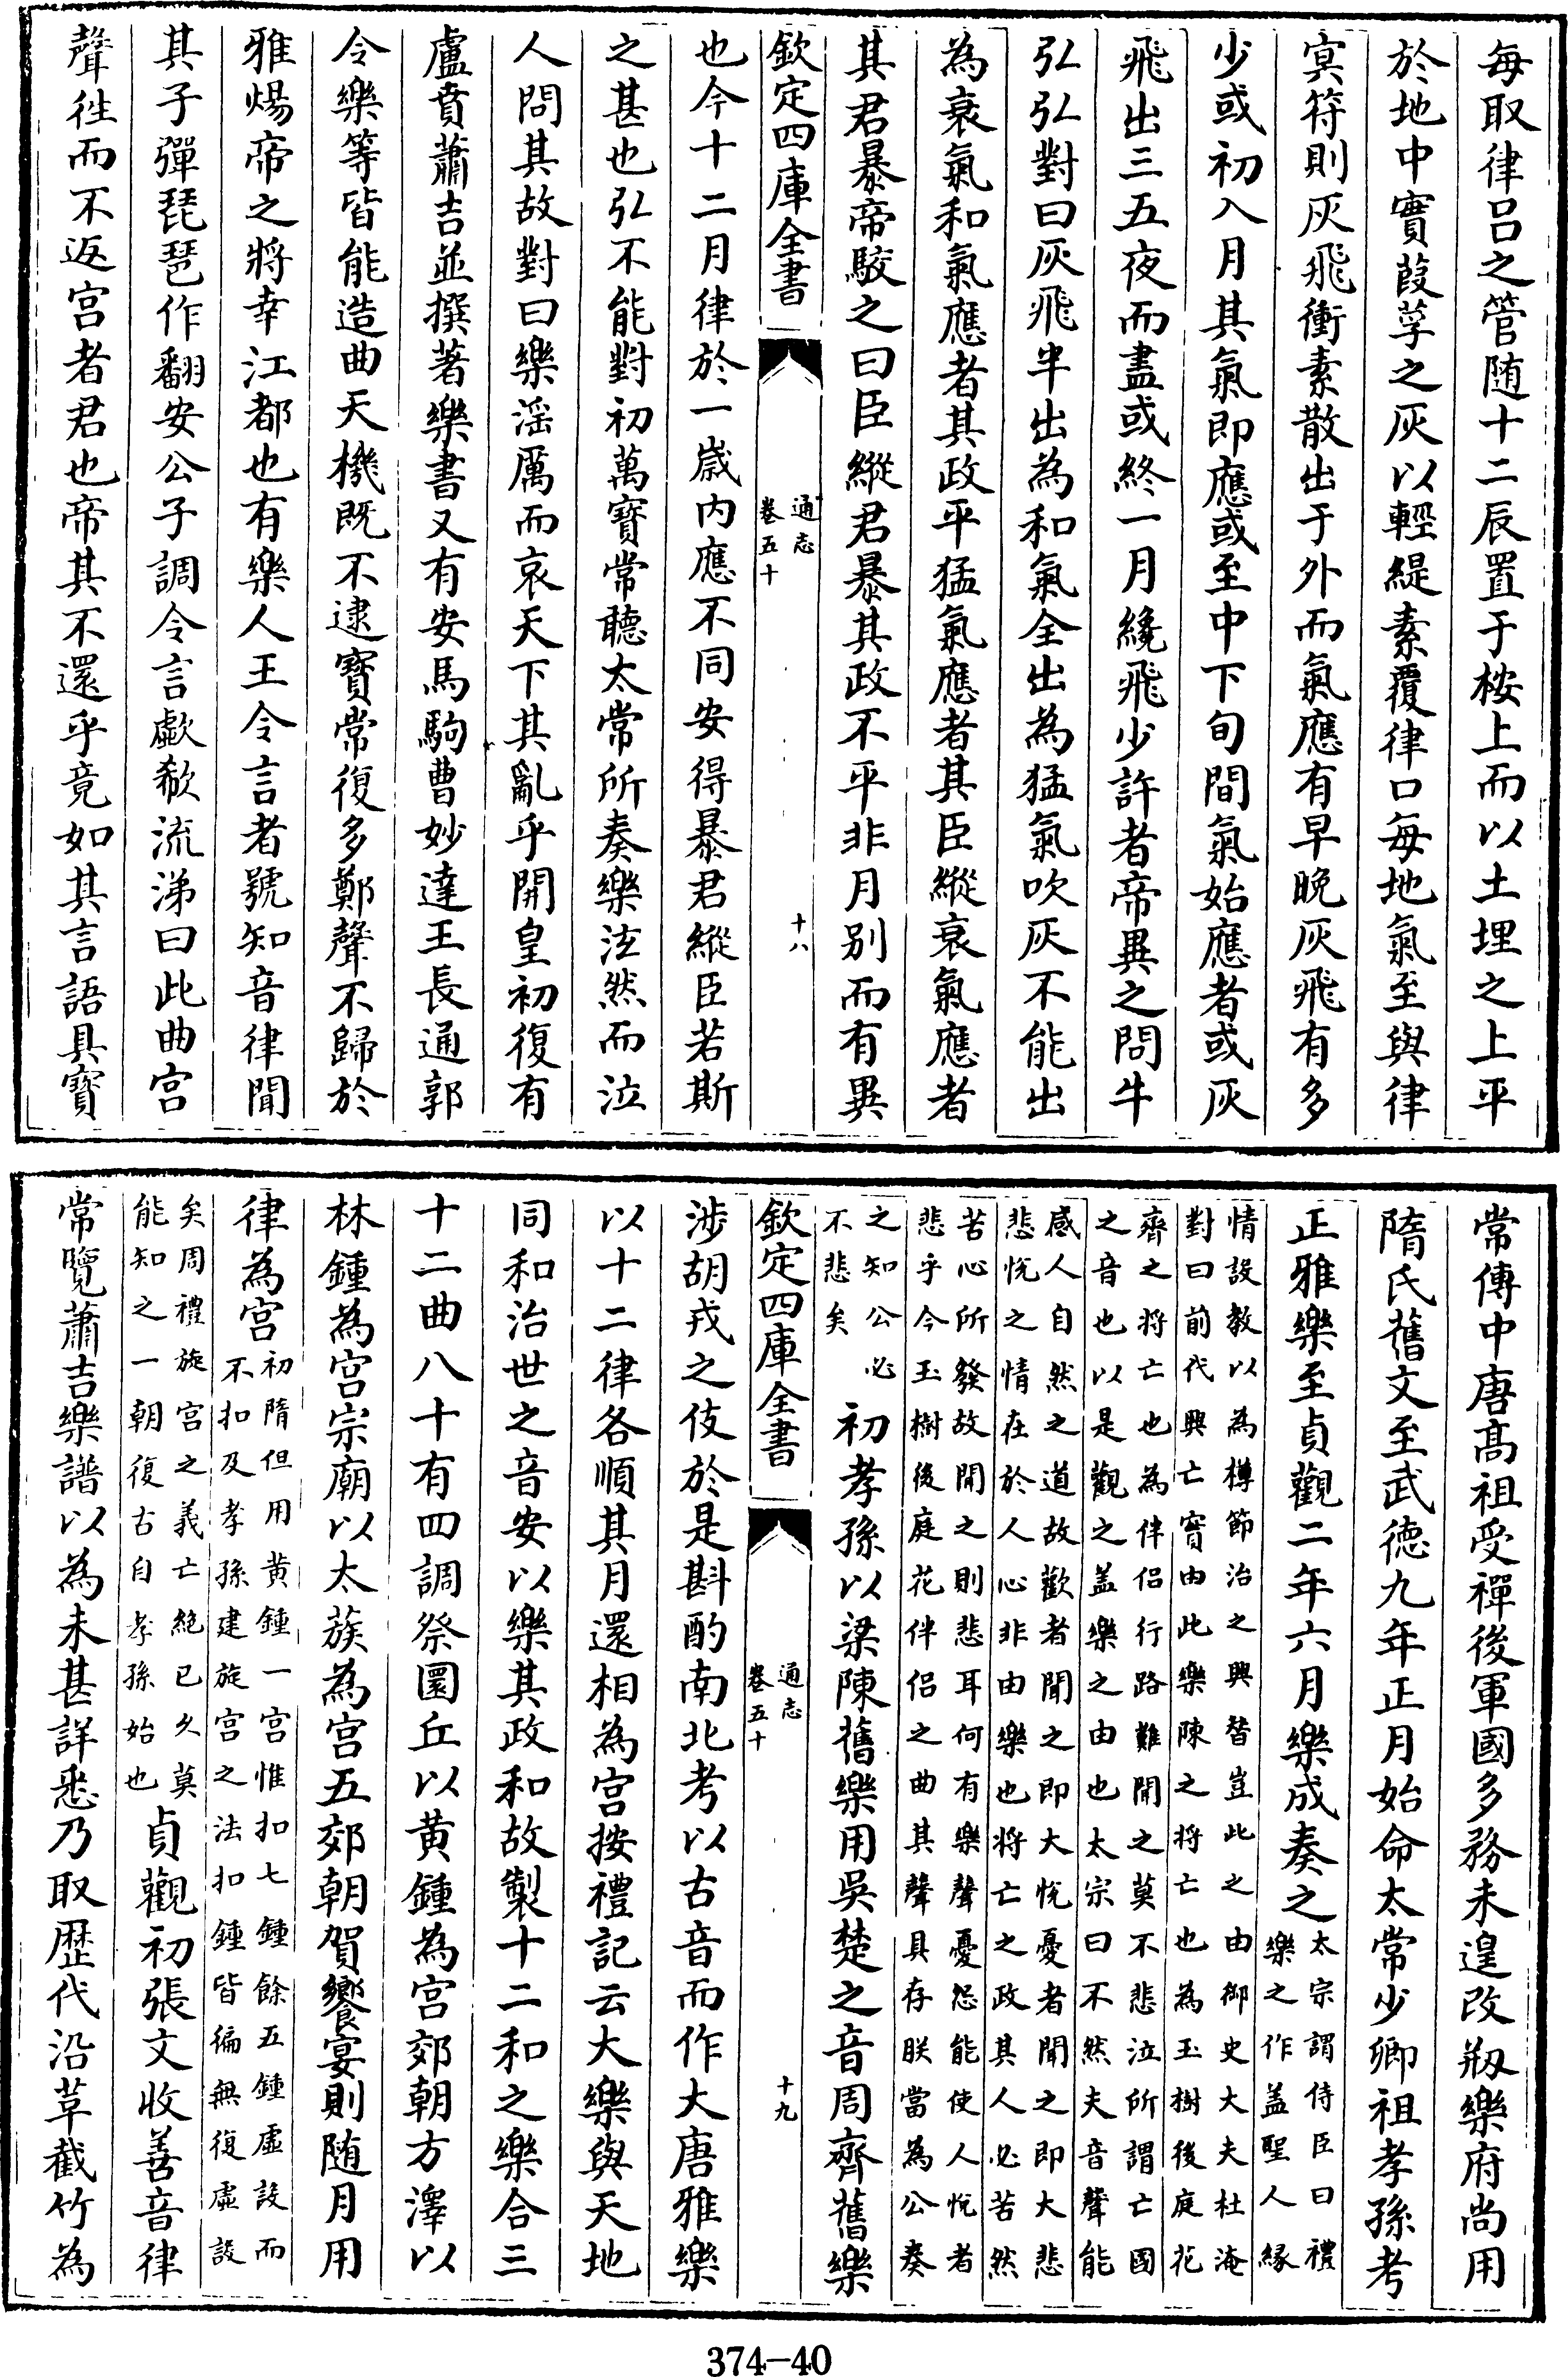 每取律呂之管随十二辰置于桉上而以土埋之上平
於地中實葭莩之灰以輕緹素覆律口每地氣至與律
㝠符則灰飛衝素散出于外而氣應有早晚灰飛有多
少或初入月其氣即應或至中下旬間氣始應者或灰
飛出三五夜而盡或終一月纔飛少許者帝異之問牛
弘弘對曰灰飛半出為和氣全出為猛氣吹灰不能出
為衰氣和氣應者其政平猛氣應者其臣縱衰氣應者
其君暴帝駮之曰臣縱君暴其政不平非月别而有異
欽定四庫全書
通志
卷五十
十八
也今十二月律於一歲内應不同安得暴君縱臣若斯
之甚也弘不能對初萬寳常聽太常所奏樂泫然而泣
人問其故對曰樂滛厲而哀天下其亂乎開皇初復有
盧賁蕭吉並撰著樂書又有安馬駒曹妙達王長通郭
令樂等皆能造曲天機既不逮寳常復多鄭聲不歸於
雅煬帝之將幸江都也有樂人王令言者號知音律聞
其子彈琵琶作翻安公子調令言歔欷流涕曰此曲宫
聲徃而不返宫者君也帝其不還乎竟如其言語具寳
常傳中唐髙祖受禪後軍國多務未遑改剏樂府尚用
隋氏舊文至武徳九年正月始命太常少卿祖孝孫考
正雅樂至貞觀二年六月樂成奏之太宗謂侍臣曰禮
樂之作盖聖人縁
情設教以為樽節治之興替豈此之由御史大夫杜淹
對曰前代興亡實由此樂陳之将亡也為玉樹後庭花
齊之将亡也為伴侣行路難聞之莫不悲泣所謂亡國
之音也以是觀之盖樂之由也太宗曰不然夫音聲能
感人自然之道故歡者聞之即大悦憂者聞之即大悲
悲悦之情在於人心非由樂也将亡之政其人必苦然
苦心所發故聞之則悲耳何有樂聲憂怨能使人悦者
悲乎今玉樹後庭花伴侣之曲其聲具存朕當為公奏
之知公必
不悲矣初孝孫以梁陳舊樂用吳楚之音周齊舊樂
欽定四庫全書
通志
卷五十
十九
渉胡戎之伎於是斟酌南北考以古音而作大唐雅樂
以十二律各順其月還相為宫按禮記云大樂與天地
同和治世之音安以樂其政和故製十二和之樂合三
十二曲八十有四調祭圜丘以黄鍾為宫郊朝方澤以
林鍾為宫宗廟以太蔟為宫五郊朝賀饗宴則随月用
律為宫初隋但用黄鍾一宫惟扣七鍾餘五鍾虚設而
不扣及孝孫建旋宫之法扣鍾皆徧無復虚設
矣周禮旋宫之義亡絶已久莫
能知之一朝復古自孝孫始也貞觀初張文收善音律
常覽蕭吉樂譜以為未甚詳悉乃取歴代沿革截竹為
374-40